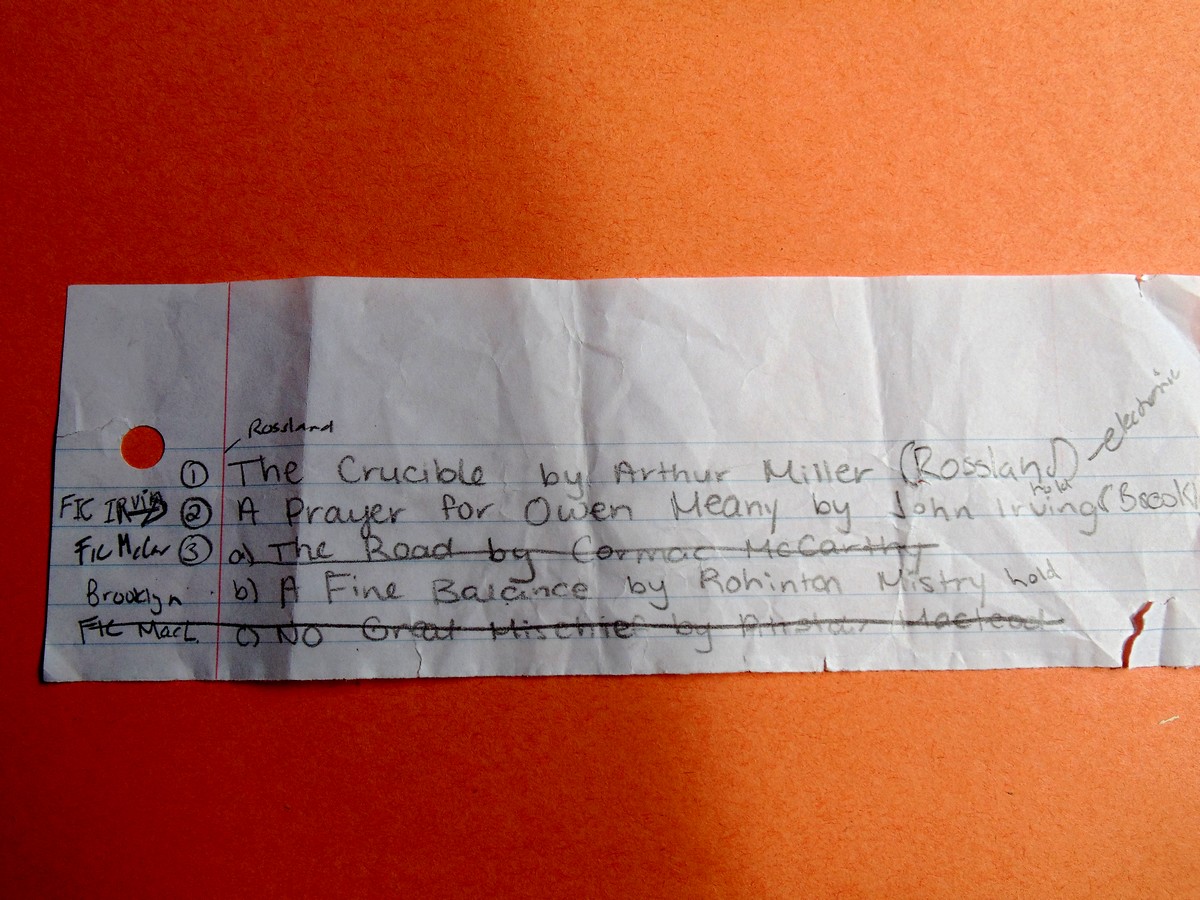 Rossland
electronic
① The Crucible by Arthur Miller (Rossland)
hold
FIC IRVIN ② A Prayer for Owen Meany by John Irving (Brookl
FIC McCar ③ a) The Road by Cormac McCarthy
Brooklyn b) A Fine Balance by Rohinton Mistry hold
FIC MacL c) No Great Mischief by Alistair Macleod